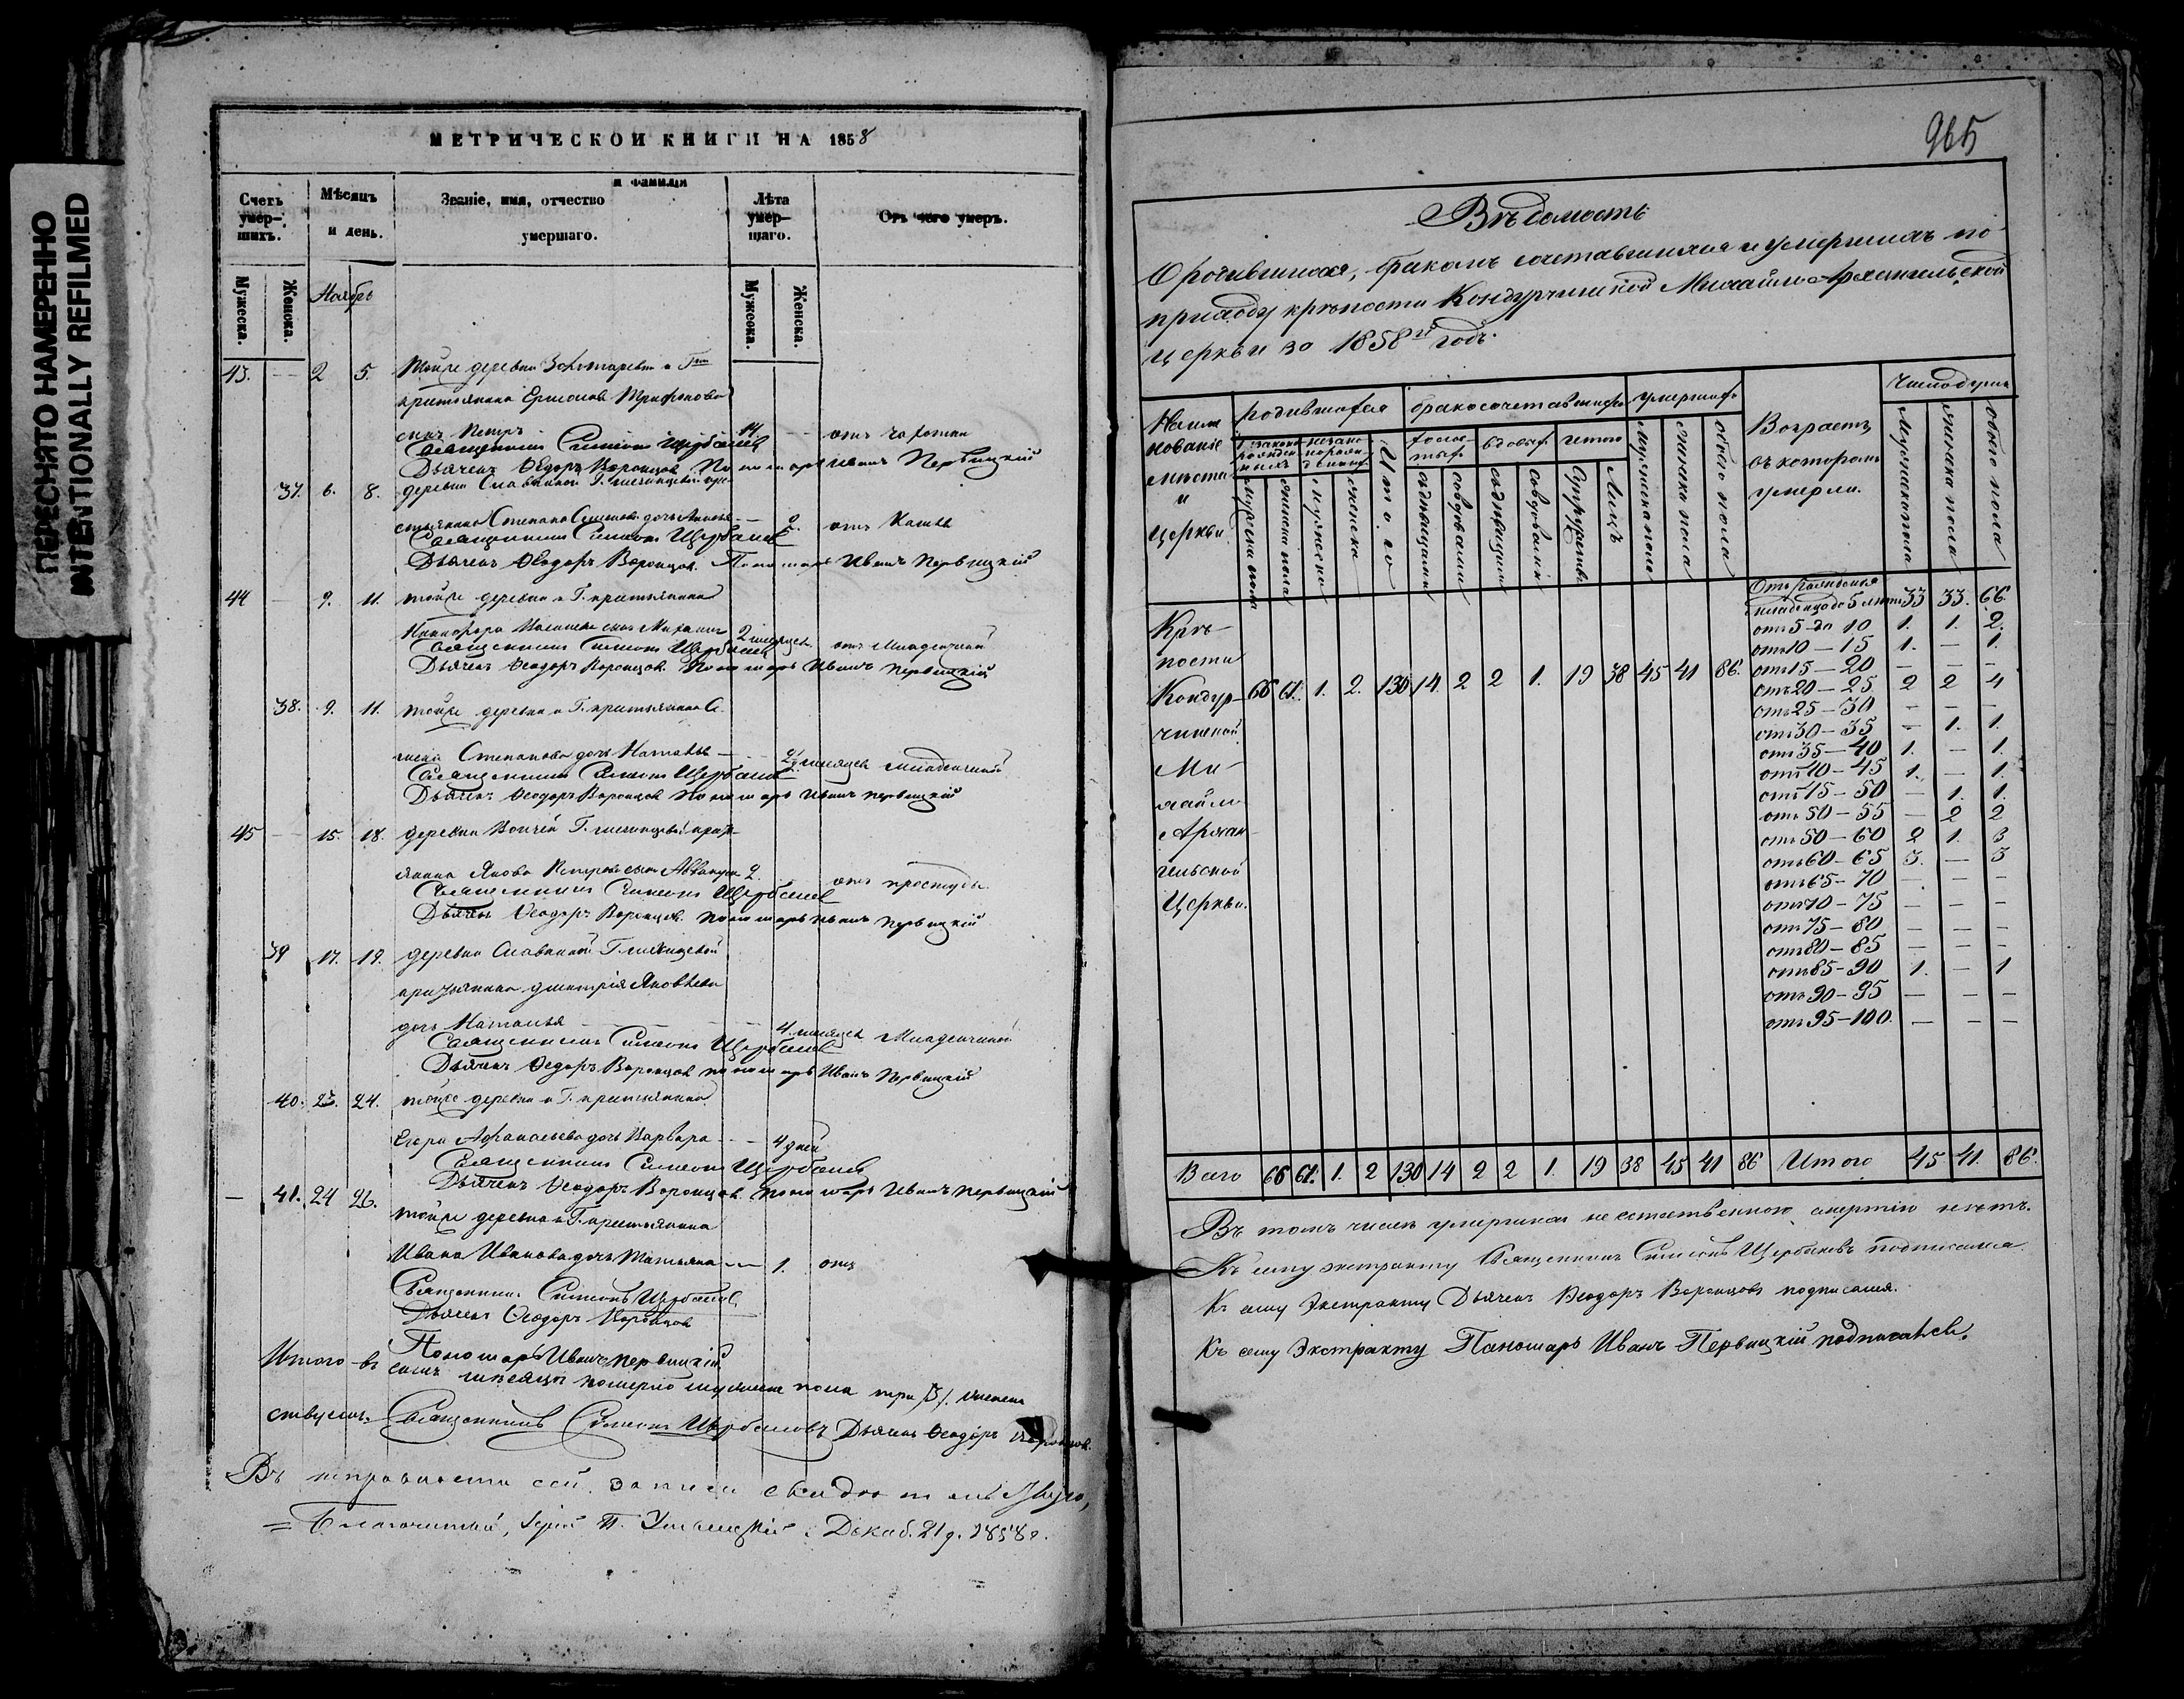 ПЕРЕСНЯТО НАМЕРЕННО
INTENTIONALLY REFILMED
МЕТРИЧЕСКОЙ КНИГИ НА 1858
Счетъ умер-шихъ.
Мѣсяцъ и день.
Званіе, имя, отчество и фамилія умершаго.
Лѣта умер-шаго.
Отъ чего умеръ.
Мужеска.
Женска.
Ноябрь
Мужеска.
Женска.
43. — 2 5. тойже деревни
крестьянина Трифонова
сынъ Петръ 14 — отъ чахотки
Священникъ Симеонъ Щербаковъ
Дьячекъ Ѳеодоръ Воронцовъ Пономарь Иванъ Первицкій
37. 6. 8. деревни
Степана дочь — 2. отъ кашля
Священникъ Симеонъ Щербаковъ
Дьячекъ Ѳеодоръ Воронцовъ. Пономарь Иванъ Первицкій
44 — 9. 11. тойже деревни и Г. крестьянина
Никифора сынъ Михаилъ 2 мѣсяцевъ отъ младенческой
Священникъ Симеонъ Щербаковъ
Дьячекъ Ѳеодоръ Воронцовъ. Пономарь Иванъ Первицкій
38. 9. 11. тойже деревни и Г. крестьянина
Степанова дочь Наталья — 2 мѣсяцев младенческой
Священникъ Симеонъ Щербаковъ
Дьячекъ Ѳеодоръ Воронцовъ Пономарь Иванъ Первицкій
45 — 15. 18. деревни
Якова Петрова сынъ 2. отъ простуды
Священникъ Симеонъ Щербаковъ
Дьячекъ Ѳеодоръ Воронцовъ. Пономарь Иванъ Первицкій
39 17. 19. деревни
крестьянина Дмитрія Яковлева
дочь Наталья — 4 мѣсяцев Младенческой
Священникъ Симеонъ Щербаковъ
Дьячекъ Ѳеодоръ Воронцовъ Пономарь Иванъ Первицкій
40. 23. 24. тойже деревни и Г. крестьянина
Егора Афанасьева дочь Варвара — 4 дней
Священникъ Симеонъ Щербаковъ
Дьячекъ Ѳеодоръ Воронцовъ. Пономарь Иванъ Первицкій
— 41. 24 26. тойже деревни и Г. крестьянина
Ивана Иванова дочь Татьяна — 1. отъ
Священникъ Симеонъ Щербаковъ
Дьячекъ Ѳеодоръ Воронцовъ
Пономарь Иванъ Первицкій
Итого въ семъ мѣсяцѣ померло мужеска пола три /3/. женска
Священникъ Симеонъ Щербаковъ Дьячекъ Ѳеодоръ Воронцов.
Въ исправности сей записи свидѣтельствую,
Благочинный, Декаб. 21 д. 1858 г.
965
Вѣдомость
О родившихся, бракомъ сочетавшихся и умершихъ по
приходу крѣпости Кондурчинской Михайло-Архангельской
церкви за 1858й годъ.
Наименованіе мѣста и церкви.
родившихся
бракосочетавшихся
умершихъ
Возрастъ, въ которомъ умерли.
Число душъ
законнорожденныхъ
незаконнорожденныхъ
Итого
холостыхъ
вдовыхъ
итого
мужеска пола
женска пола
мужеска
женска
съ дѣвицами
со вдовами
съ дѣвицами
со вдовами
Супружествъ
Лицъ
мужеска пола
женска пола
обоего пола
мужеска пола
женска пола
обоего пола
Крѣ-
пости
Кондур-
чинской
Ми-
хайло
Архан-
гельской
Церкви.
66 61. 1. 2. 130 14. 2 2 1. 19 38 45 41 86.
Отъ рожденія младенца до 5 лѣтъ 33 33. 66.
отъ 5 до 10 1. 1. 2.
отъ 10 — 15 1. — 1.
отъ 15 — 20 — — —
отъ 20 — 25 2 2 4
отъ 25 — 30 — — —
отъ 30 — 35 — 1. 1.
отъ 35 — 40 1. — 1.
отъ 40 — 45 1. — 1.
отъ 45 — 50 — 1. 1.
отъ 50 — 55 — 2 2
отъ 50 — 60 2 1. 3
отъ 60 — 65 3. — 3
отъ 65 — 70 — — —
отъ 70 — 75 — — —
отъ 75 — 80 — — —
отъ 80 — 85 — — —
отъ 85 — 90 1. — 1
отъ 90 — 95 — — —
отъ 95 — 100. — — —
Всего 66 61. 1. 2 130 14 2 2 1. 19 38 45 41 86 Итого 45 41. 86.
Въ томъ числѣ умершихъ неестественною смертію нѣтъ.
Къ сему экстракту Священникъ Симеонъ Щербаковъ подписался.
Къ сему Экстракту Дьячекъ Ѳеодоръ Воронцовъ подписался.
Къ сему Экстракту Пономарь Иванъ Первицкій подписался.